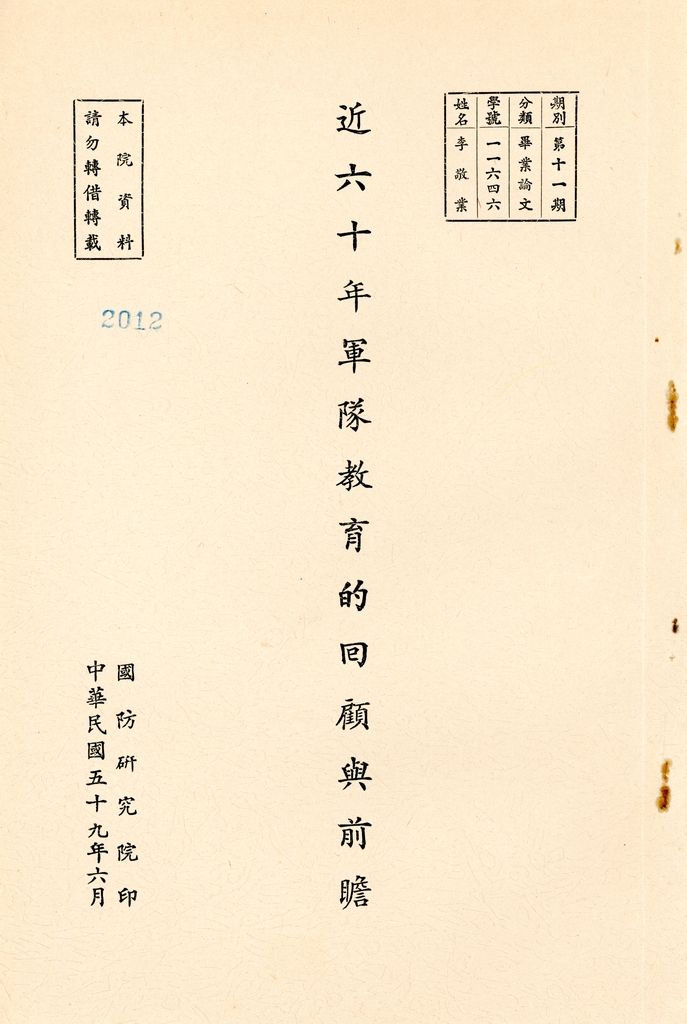 期別 第十一期
分類 畢業論文
學號 一一六四六
姓名 李敬業
近六十年軍隊教育的回顧與前瞻
本院資料
請勿轉借轉載
2012
國防研究院印
中華民國五十九年六月